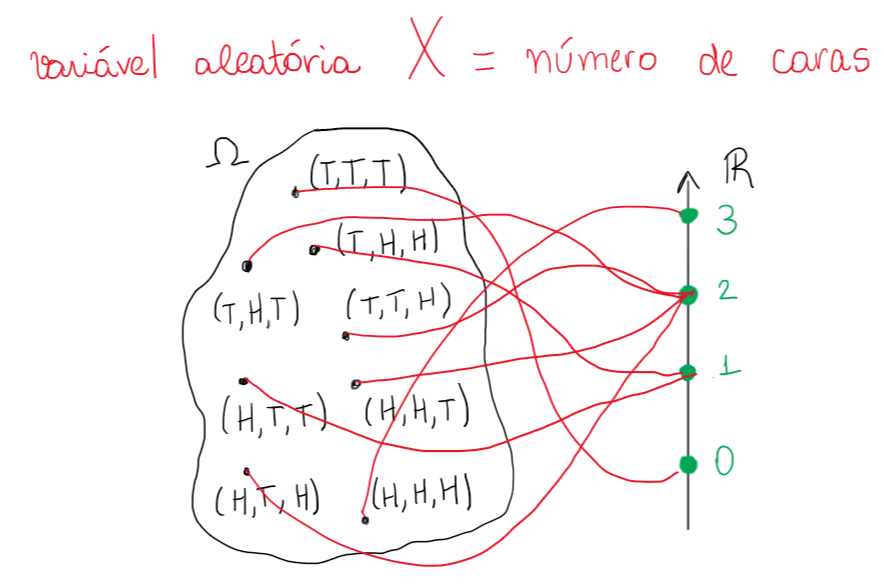 variável aleatória X = número de caras
Ω
ℝ
(T,T,T)
3
(T,H,H)
(T,H,T)
(T,T,H)
2
1
(H,T,T)
(H,H,T)
0
(H,T,H)
(H,H,H)